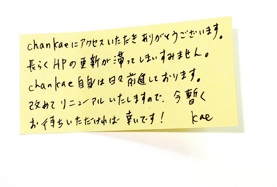 chankaeにアクセスいただきありがとうございます。
長らくHPの更新が滞ってしまいすみません。
chankae自身は日々前進しております。
改めてリニューアルいたしますので、今暫く
お待ちいただければ幸いです! kae